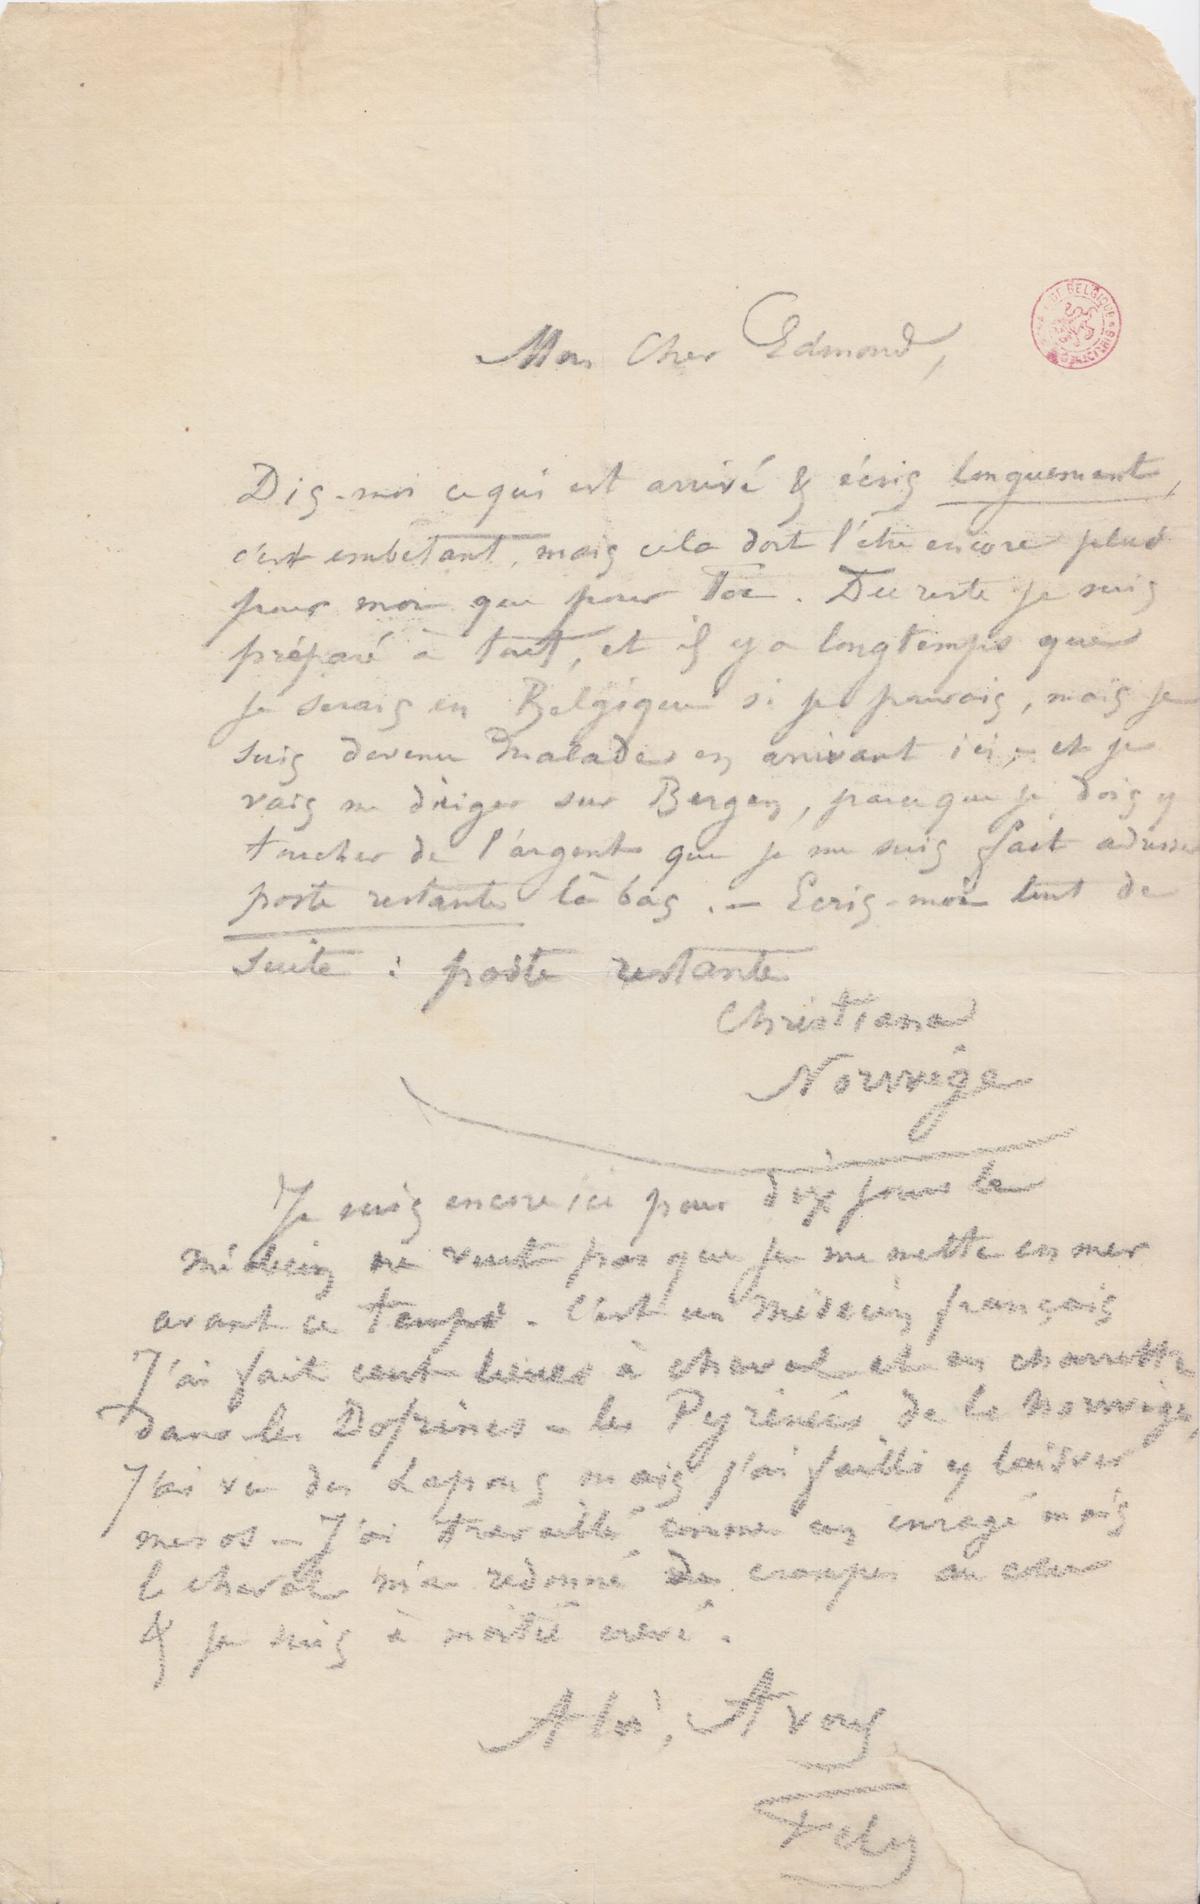 Mon Cher Edmond,
Dis-moi ce qui est arrivé & écris longuement,
c'est embêtant, mais cela doit l'être encore plus
pour moi que pour Toi. Du reste je suis
préparé à tout, et il y a longtemps que
je serais en Belgique si je pouvais, mais je
suis devenu malade en arrivant ici, - et je
vais me diriger sur Bergen, parce que je dois y
toucher de l'argent que je me suis fait adresser
poste restante là bas. - Ecris-moi tout de
suite : poste restante
Christiana
Norwège
Je suis encore ici pour dix jours le
médecin ne veut pas que je me mette en mer
avant ce temps. C'est un médecin français
J'ai fait cent lieues à cheval et en charrette
dans les Dofrines - les Pyrénées de la Norwège,
J'ai vu des Lapons mais j'ai failli y laisser
mes os - J'ai travaillé comme un enragé mais
le cheval m'a redonné des crampes au
& je suis à moitié crevé.
A toi, A vous
Fély